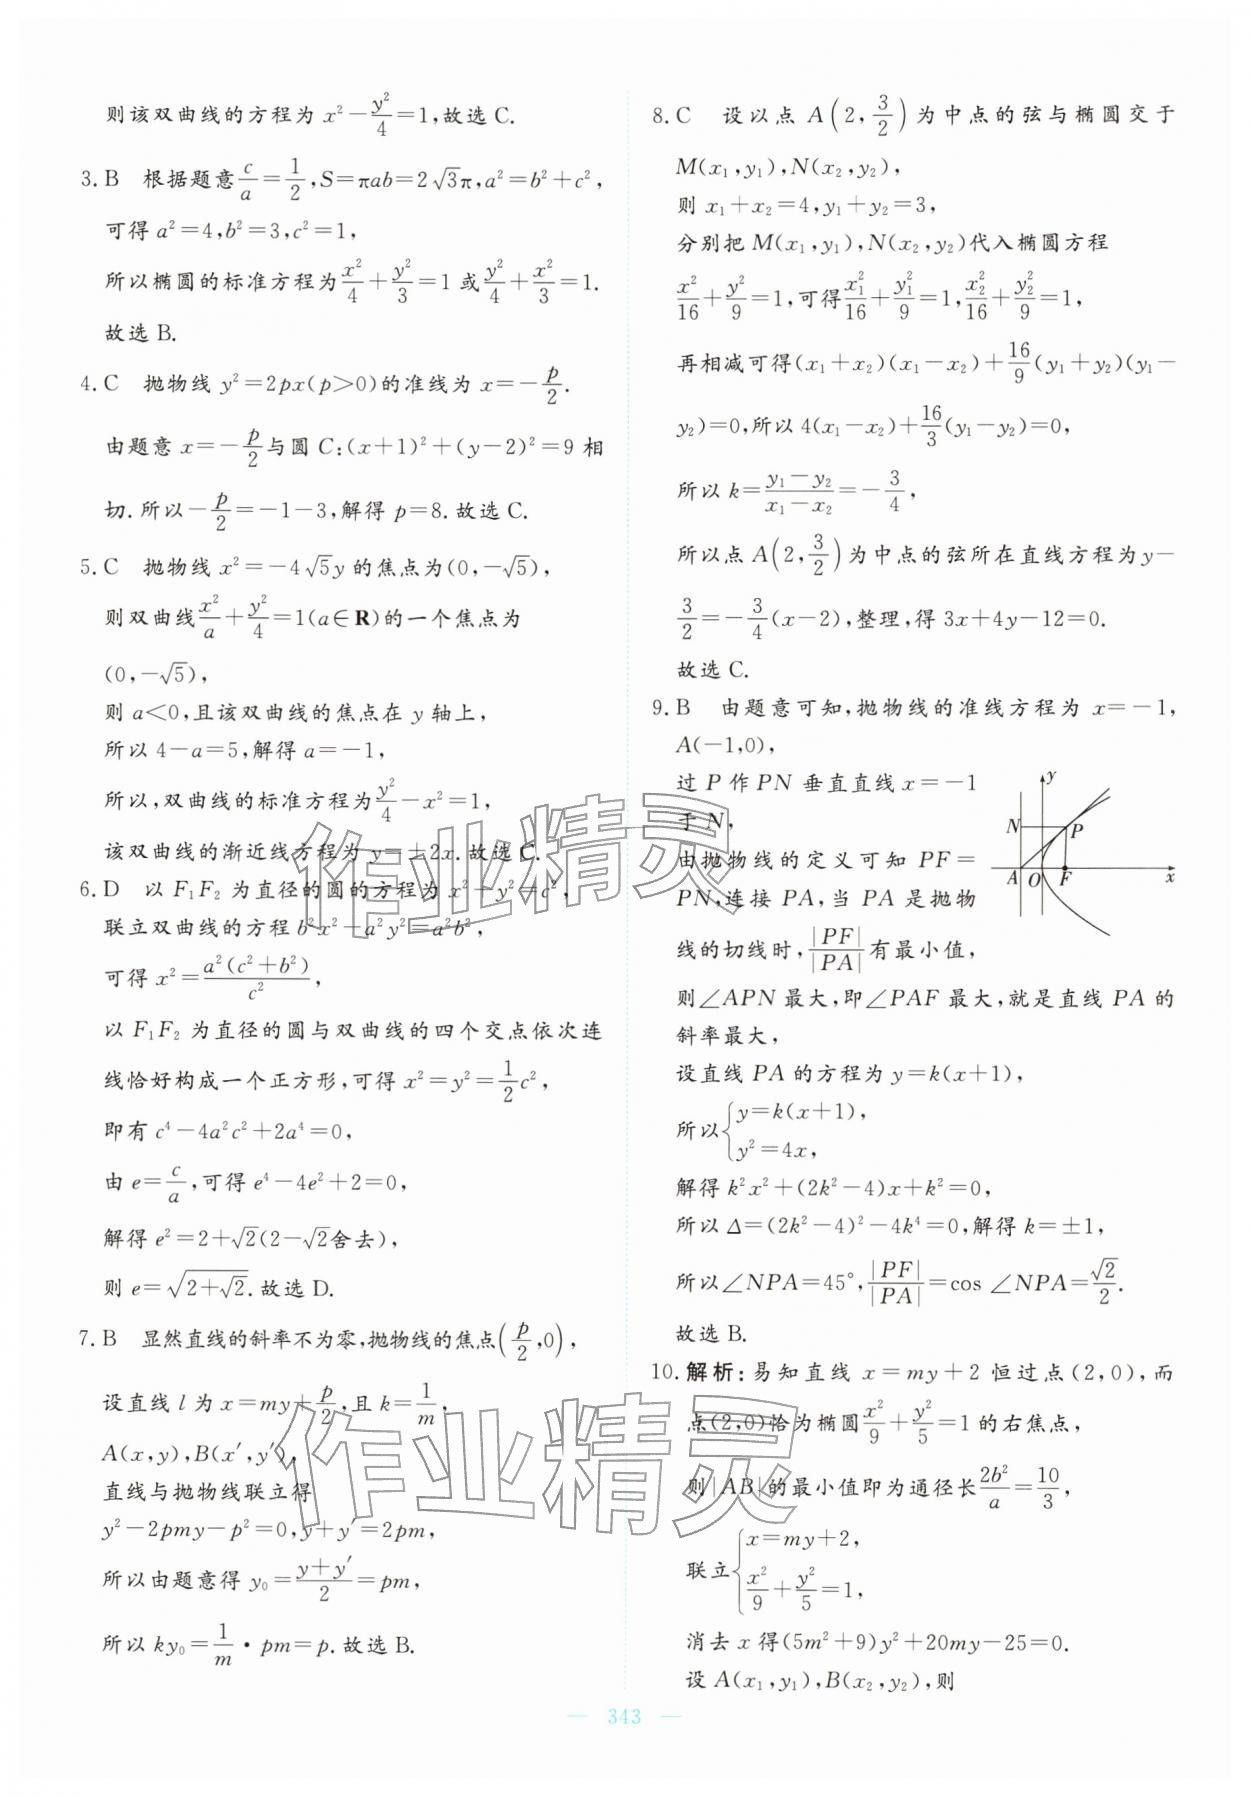 则该双曲线的方程为 x²－y²/4＝1,故选 C.
3. B　根据题意 c/a＝1/2,S＝πab＝2√3π,a²＝b²＋c²,
可得 a²＝4,b²＝3,c²＝1,
所以椭圆的标准方程为 x²/4＋y²/3＝1 或 y²/4＋x²/3＝1.
故选 B.
4. C　抛物线 y²＝2px(p＞0)的准线为 x＝－p/2.
由题意 x＝－p/2 与圆 C:(x＋1)²＋(y－2)²＝9 相
切.所以－p/2＝－1－3,解得 p＝8.故选 C.
5. C　抛物线 x²＝－4√5y 的焦点为(0,－√5),
则双曲线 x²/a＋y²/4＝1(a∈R)的一个焦点为
(0,－√5),
则 a＜0,且该双曲线的焦点在 y 轴上,
所以 4－a＝5,解得 a＝－1,
所以,双曲线的标准方程为 y²/4－x²＝1,
该双曲线的渐近线方程为 y＝±2x.故选 C.
6. D　以 F₁F₂ 为直径的圆的方程为 x²＋y²＝c²,
联立双曲线的方程 b²x²－a²y²＝a²b²,
可得 x²＝a²(c²＋b²)/c²,
以 F₁F₂ 为直径的圆与双曲线的四个交点依次连
线恰好构成一个正方形,可得 x²＝y²＝1/2c²,
即有 c⁴－4a²c²＋2a⁴＝0,
由 e＝c/a,可得 e⁴－4e²＋2＝0,
解得 e²＝2＋√2(2－√2舍去),
则 e＝√(2＋√2).故选 D.
7. B　显然直线的斜率不为零,抛物线的焦点(p/2,0),
设直线 l 为 x＝my＋p/2,且 k＝1/m,
A(x,y),B(x′,y′),
直线与抛物线联立得
y²－2pmy－p²＝0,y＋y′＝2pm,
所以由题意得 y₀＝(y＋y′)/2＝pm,
所以 ky₀＝1/m·pm＝p.故选 B.
8. C　设以点 A(2,3/2)为中点的弦与椭圆交于
M(x₁,y₁),N(x₂,y₂),
则 x₁＋x₂＝4,y₁＋y₂＝3,
分别把 M(x₁,y₁),N(x₂,y₂)代入椭圆方程
x²/16＋y²/9＝1,可得 x₁²/16＋y₁²/9＝1,x₂²/16＋y₂²/9＝1,
再相减可得(x₁＋x₂)(x₁－x₂)＋16/9(y₁＋y₂)(y₁－
y₂)＝0,所以 4(x₁－x₂)＋16/3(y₁－y₂)＝0,
所以 k＝(y₁－y₂)/(x₁－x₂)＝－3/4,
所以点 A(2,3/2)为中点的弦所在直线方程为 y－
3/2＝－3/4(x－2),整理,得 3x＋4y－12＝0.
故选 C.
9. B　由题意可知,抛物线的准线方程为 x＝－1,
A(－1,0),
过 P 作 PN 垂直直线 x＝－1
于 N,
由抛物线的定义可知 PF＝
PN,连接 PA,当 PA 是抛物
线的切线时,|PF|/|PA|有最小值,
y
N
P
A
O
F
x
则∠APN 最大,即∠PAF 最大,就是直线 PA 的
斜率最大,
设直线 PA 的方程为 y＝k(x＋1),
所以{y＝k(x＋1),
y²＝4x,
解得 k²x²＋(2k²－4)x＋k²＝0,
所以 Δ＝(2k²－4)²－4k⁴＝0,解得 k＝±1,
所以∠NPA＝45°,|PF|/|PA|＝cos ∠NPA＝√2/2.
故选 B.
10. 解析:易知直线 x＝my＋2 恒过点(2,0),而
点(2,0)恰为椭圆 x²/9＋y²/5＝1 的右焦点,
则|AB|的最小值即为通径长 2b²/a＝10/3,
联立{x＝my＋2,
x²/9＋y²/5＝1,
消去 x 得(5m²＋9)y²＋20my－25＝0.
设 A(x₁,y₁),B(x₂,y₂),则
— 343 —
作业精灵
作业精灵